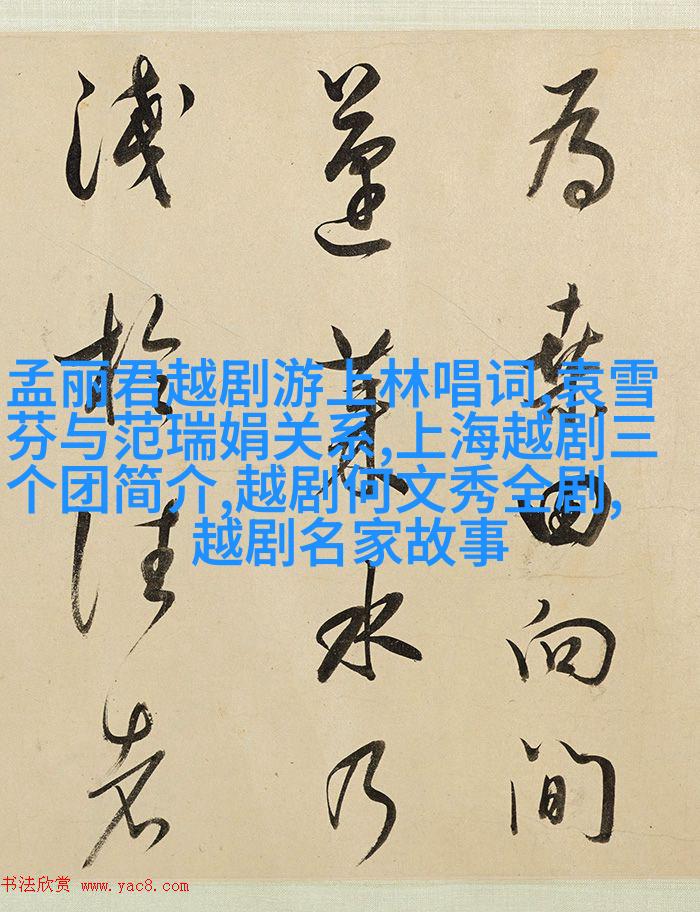 為桑田向間
蓬萊水乃
淺於往者
孟丽君越剧游上林唱词,袁雪
芬与范瑞娟关系,上海越剧三
个团简介,越剧何文秀全剧,
越剧名家故事
书法欣赏 www.yac8.com